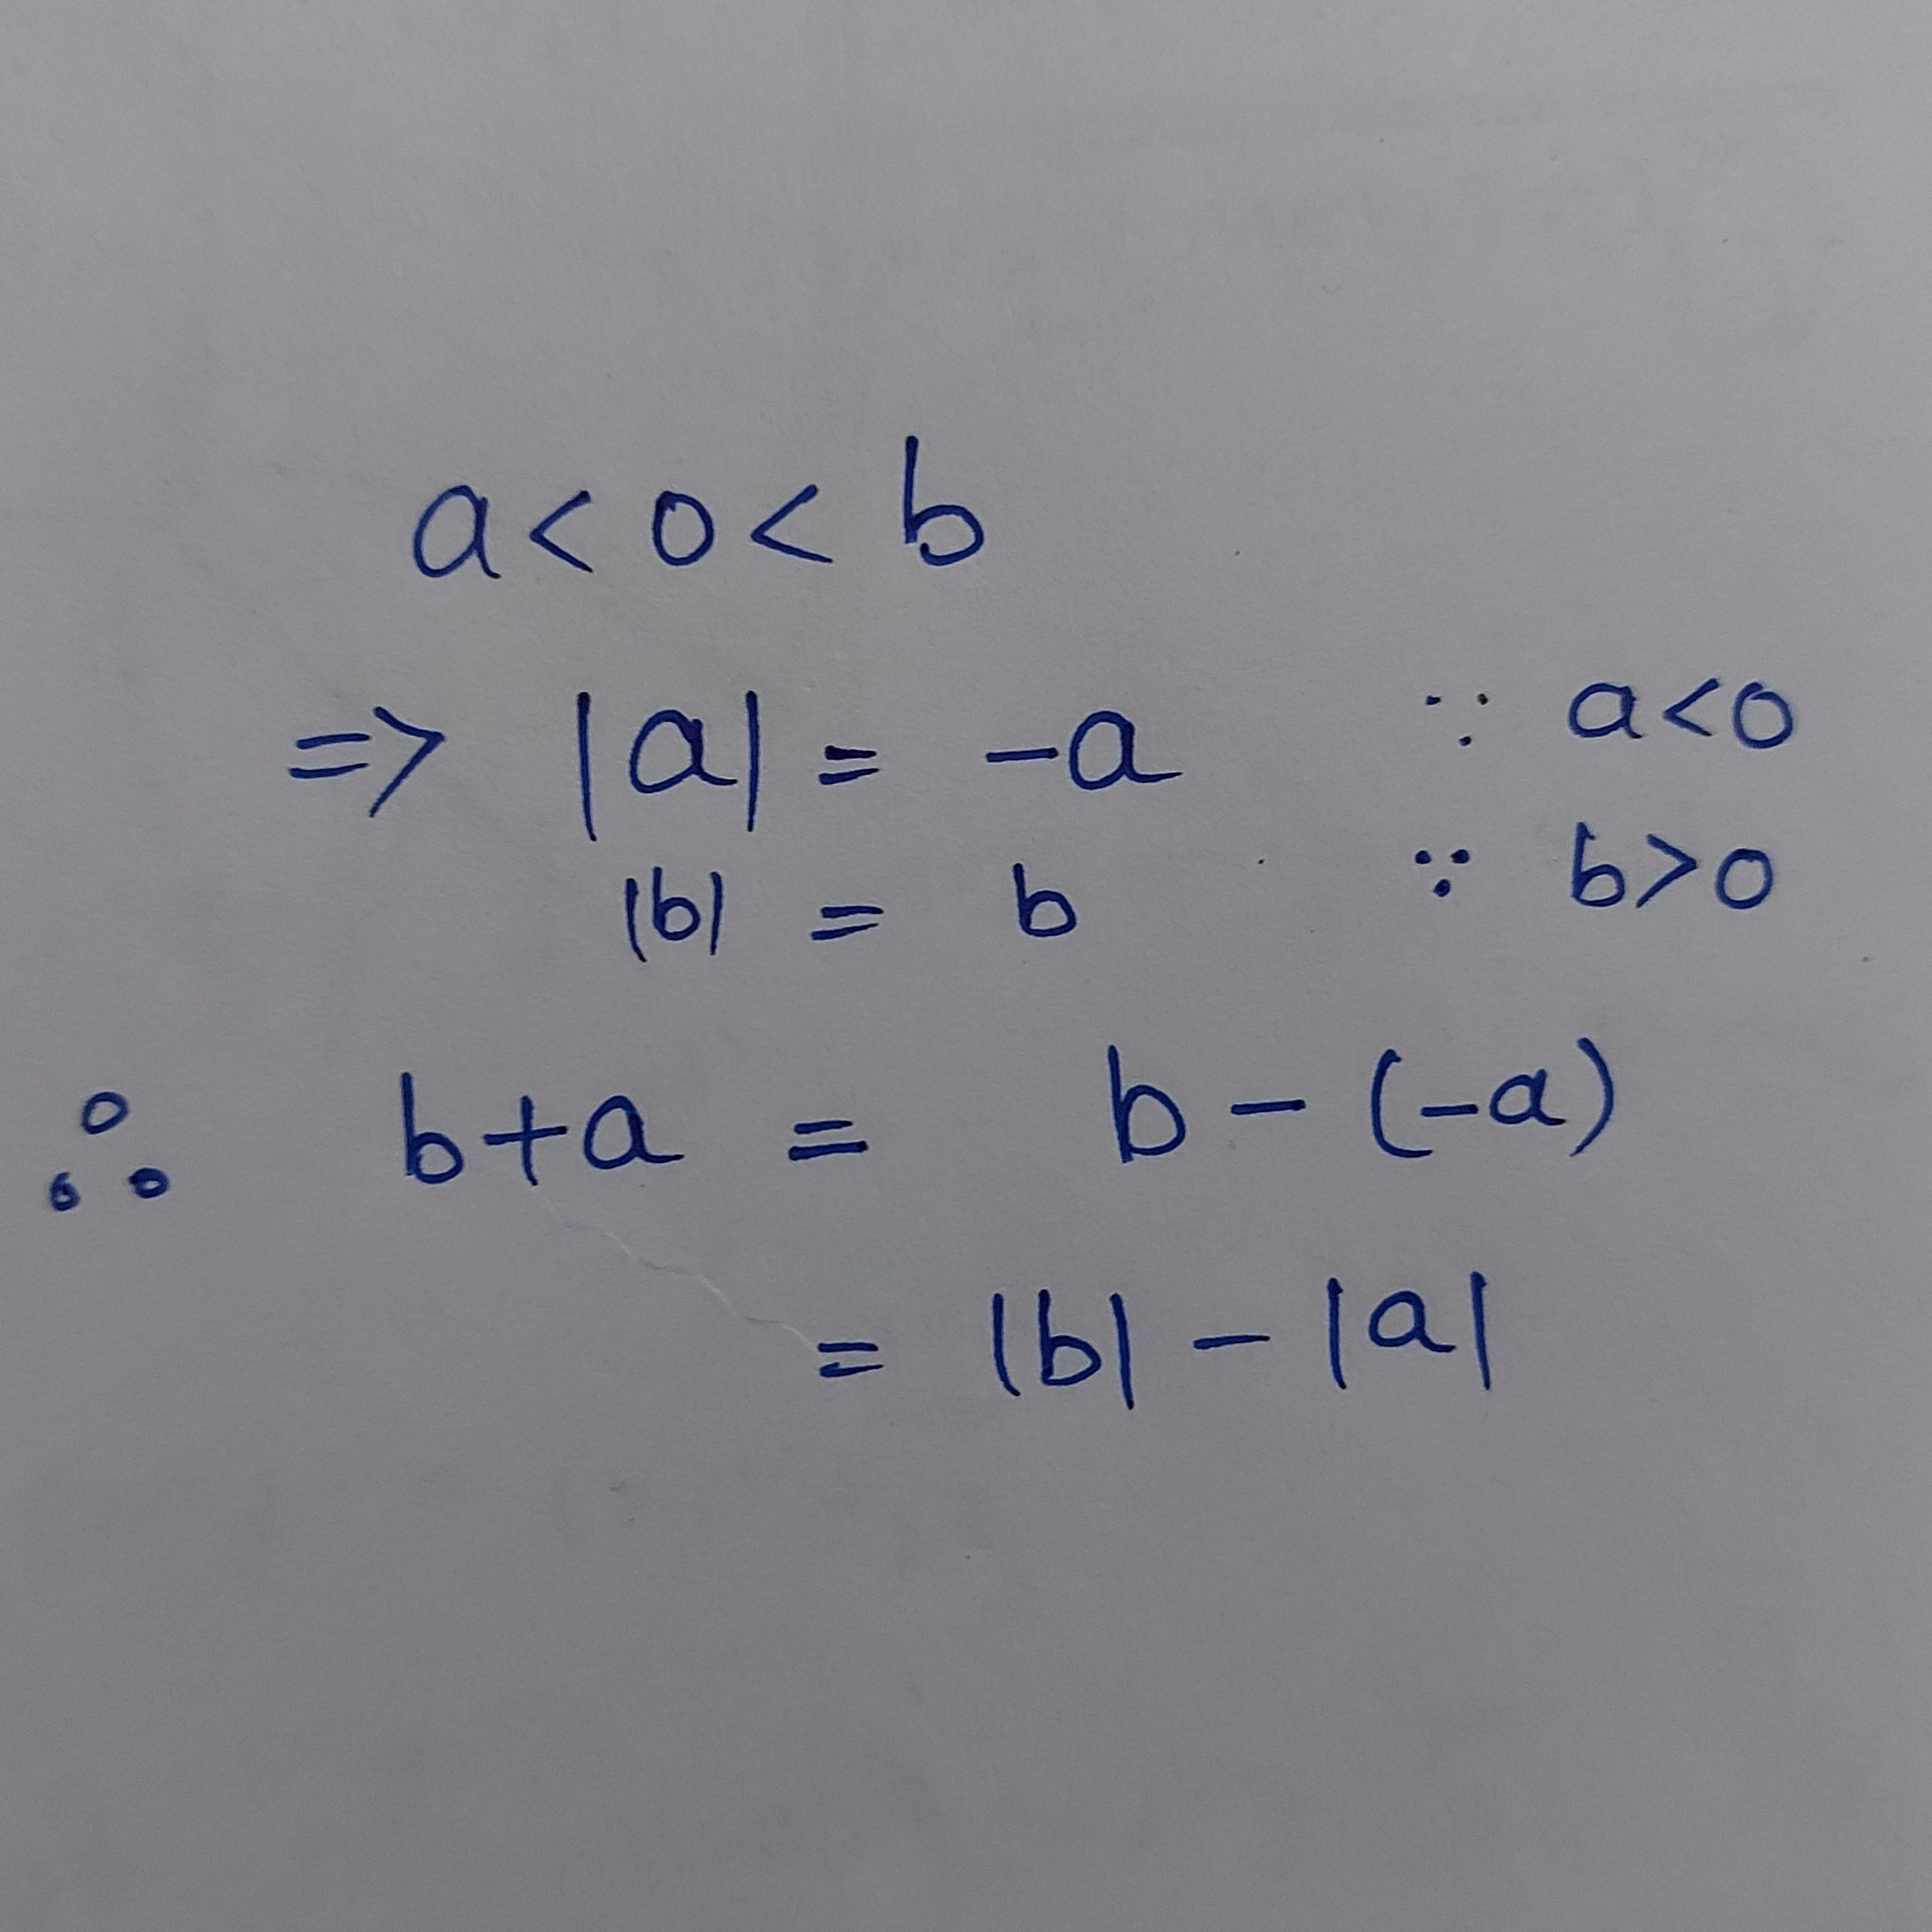 a < 0 < b
=> |a| = -a ∵ a<0
|b| = b ∵ b>0
∴ b+a = b - (-a)
= |b| - |a|